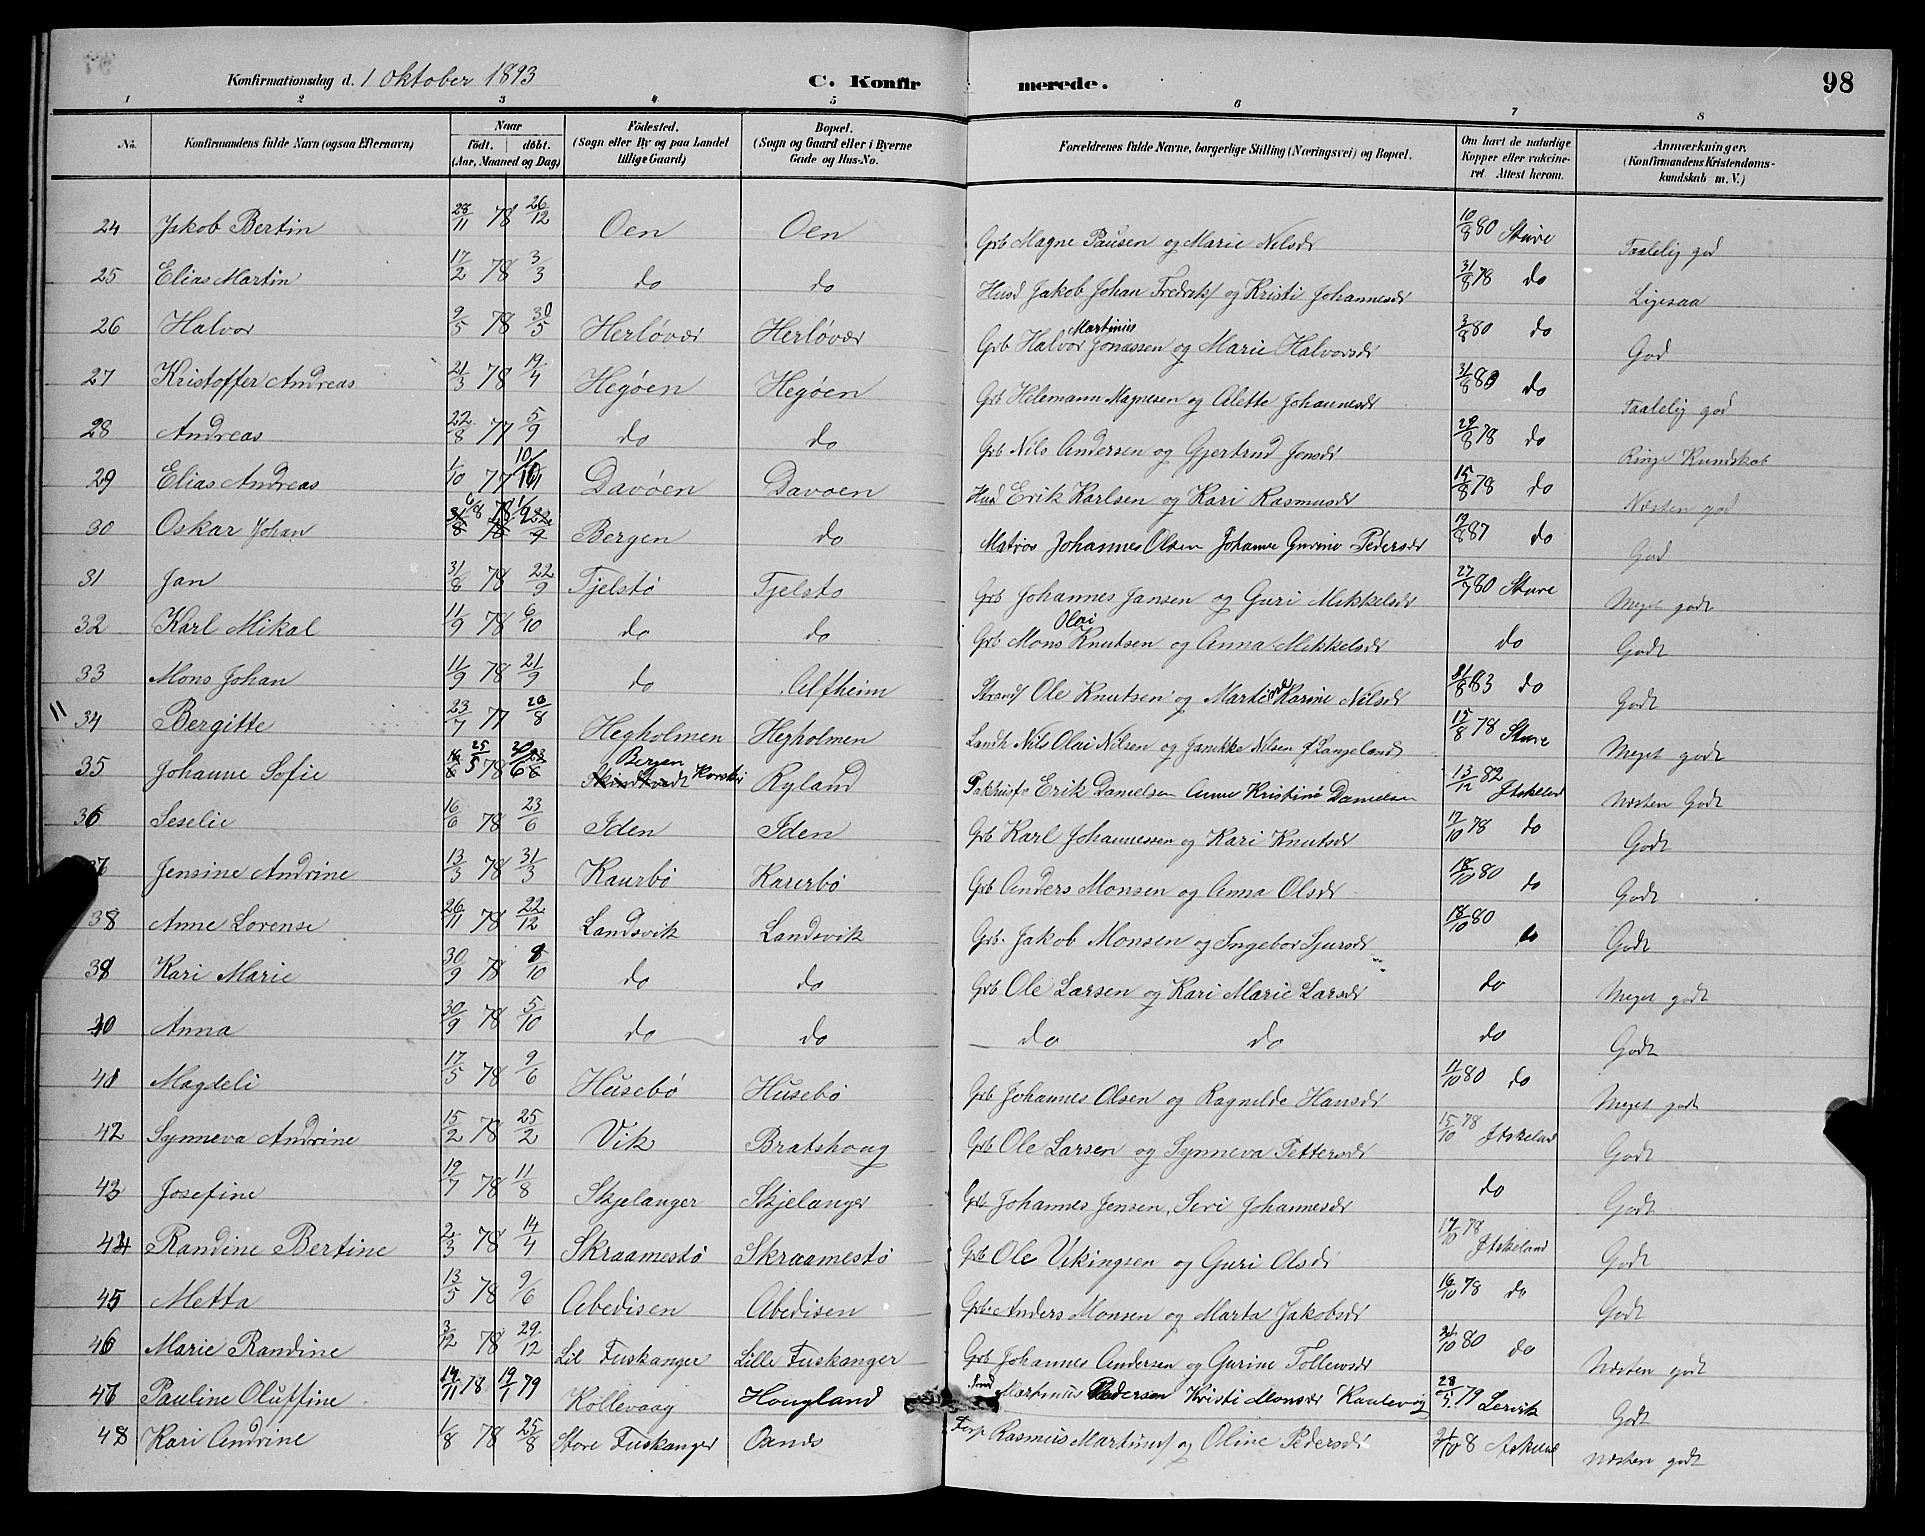 Konfirmationsdag d. 1 Oktober 1893 C. Konfir merede. 98
1 2 3 4 5 6 7 8
No. Konfirmandens fulde Navn (ogsaa Efternavn) Naar født. døbt. (Aar, Maaned og Dag) Fødested. (Sogn eller By og paa Landet tillige Gaard) Bopæl. (Sogn og Gaard eller i Byerne Gade og Hus-No. Forældrenes fulde Navne, borgerlige Stilling (Næringsvei) og Bopæl. Om havt de naturlige Kopper eller vakcineret Attest herom. Anmærkninger. (Konfirmandens Kristendomskundskab m. V.)
24 Jakob Bertin 28/11 78 26/12 Oen Oen Grb Magne Pausen og Marie Nilsdr 10/8 80 Sture Taalelig god
25 Elias Martin 17/2 78 3/3 do do Husd Jakob Johan Fredriks og Kristi Johannesdr 31/8 78 do Ligesaa
26 Halvor 9/5 78 30/5 Herløvær Herløvær Grb Halvor Martinius Jonassen og Marie Halvorsdr 3/8 80 do God
27 Kristoffer Andreas 21/3 78 19/4 Hegøen Hegøen Grb Helemann Magnesen og Alette Johannesdr 31/8 80 do Taalelig god
28 Andreas 22/8 77 5/9 do do Grb Nils Andersen og Gjertrud Jonsdr 29/8 78 do Ringe Kundskab
29 Elias Andreas 1/10 77 10/10 Davøen Davøen Husd Erik Karlsen og Kari Rasmusdr 15/8 78 do Næsten god
30 Oskar Johan 6/8 78 1/9 Bergen do Matros Johannes Olsen Johanne Gurine Pedersdr 19/8 87 do God
31 Jan 31/8 78 22/9 Tjelstø Tjelstø Grb Johannes Jansen og Guri Mikkelsdr 27/7 80 Sture Meget godt
32 Karl Mikal 11/9 78 6/10 do do Grb Mons Olai Knutsen og Anna Mikkelsdr do Godt
33 Mons Johan 11/9 78 21/9 do Alfheim Strands Ole Knutsen og Marte Karine Nilsdr 31/8 83 do Godt
34 Bergitte 23/7 77 26/8 Hegholmen Hegholmen Landh Nils Olai Nilsen og Janikke Nilsen f Langeland 15/8 78 Sture Meget godt
35 Johanne Sofie 25/5 78 30/6 Bergen Korskir Ryland Pakhusf Erik Danielsen Anne Kristine Danielsen 13/12 82 Itskeland Næsten Godt
36 Seselie 16/6 78 23/6 Iden Iden Grb Karl Johannessen og Kari Knutsdr 17/10 78 do Godt
37 Jensine Andrine 13/3 78 31/3 Kaurbø Karerbø Grb Anders Monsen og Anna Olsdr 18/10 80 do Godt
38 Anne Lovense 26/11 78 22/12 Landsvik Landsvik Grb. Jakob Monsen og Ingebor Sjursdr 18/10 80 do Godt
39 Kari Marie 30/9 78 8/10 do do Grb Ole Larsen og Kari Marie Larsdr do Meget godt
40 Anna 30/9 78 5/10 do do do do do Godt
41 Magdeli 17/5 78 9/6 Husebø Husebø Grb Johannes Olsen og Ragnilde Hansdr 11/10 80 do Meget godt
42 Synneva Andrine 15/2 78 25/2 Vik Bratshoug Grb Ole Larsen og Synneva Pettersdr 15/10 78 Itskeland Godt
43 Josefine 19/7 78 11/8 Skjelanger Skjelanger Grb Johannes Jensen, Siri Johannesdr do Godt
44 Randine Bertine 2/3 78 14/4 Skraamestø Skraamestø Grb Ole Vikingsen og Guri Olsdr 17/10 78 Itskeland Godt
45 Metta 13/5 78 9/6 Abedisen Abedisen Grb. Anders Monsen og Marta Jakobsdr 16/10 78 do Godt
46 Marie Randine 3/12 78 29/12 Lil Fuskanger Lille Fuskanger Grb Johannes Andersen og Gurine Tollevsdr 21/10 80 do Næsten godt
47 Pauline Oluffine 14/11 78 19/1 79 Kollevaag Hougland Martinus Pedersen Kristi Monsdr Kaulevog 28/5 79 Lervik Godt
48 Kari Andrine 1/8 78 25/8 Store Fuskanger Rasmus Martinus og Oline Pedersdr Askeland Næsten godt